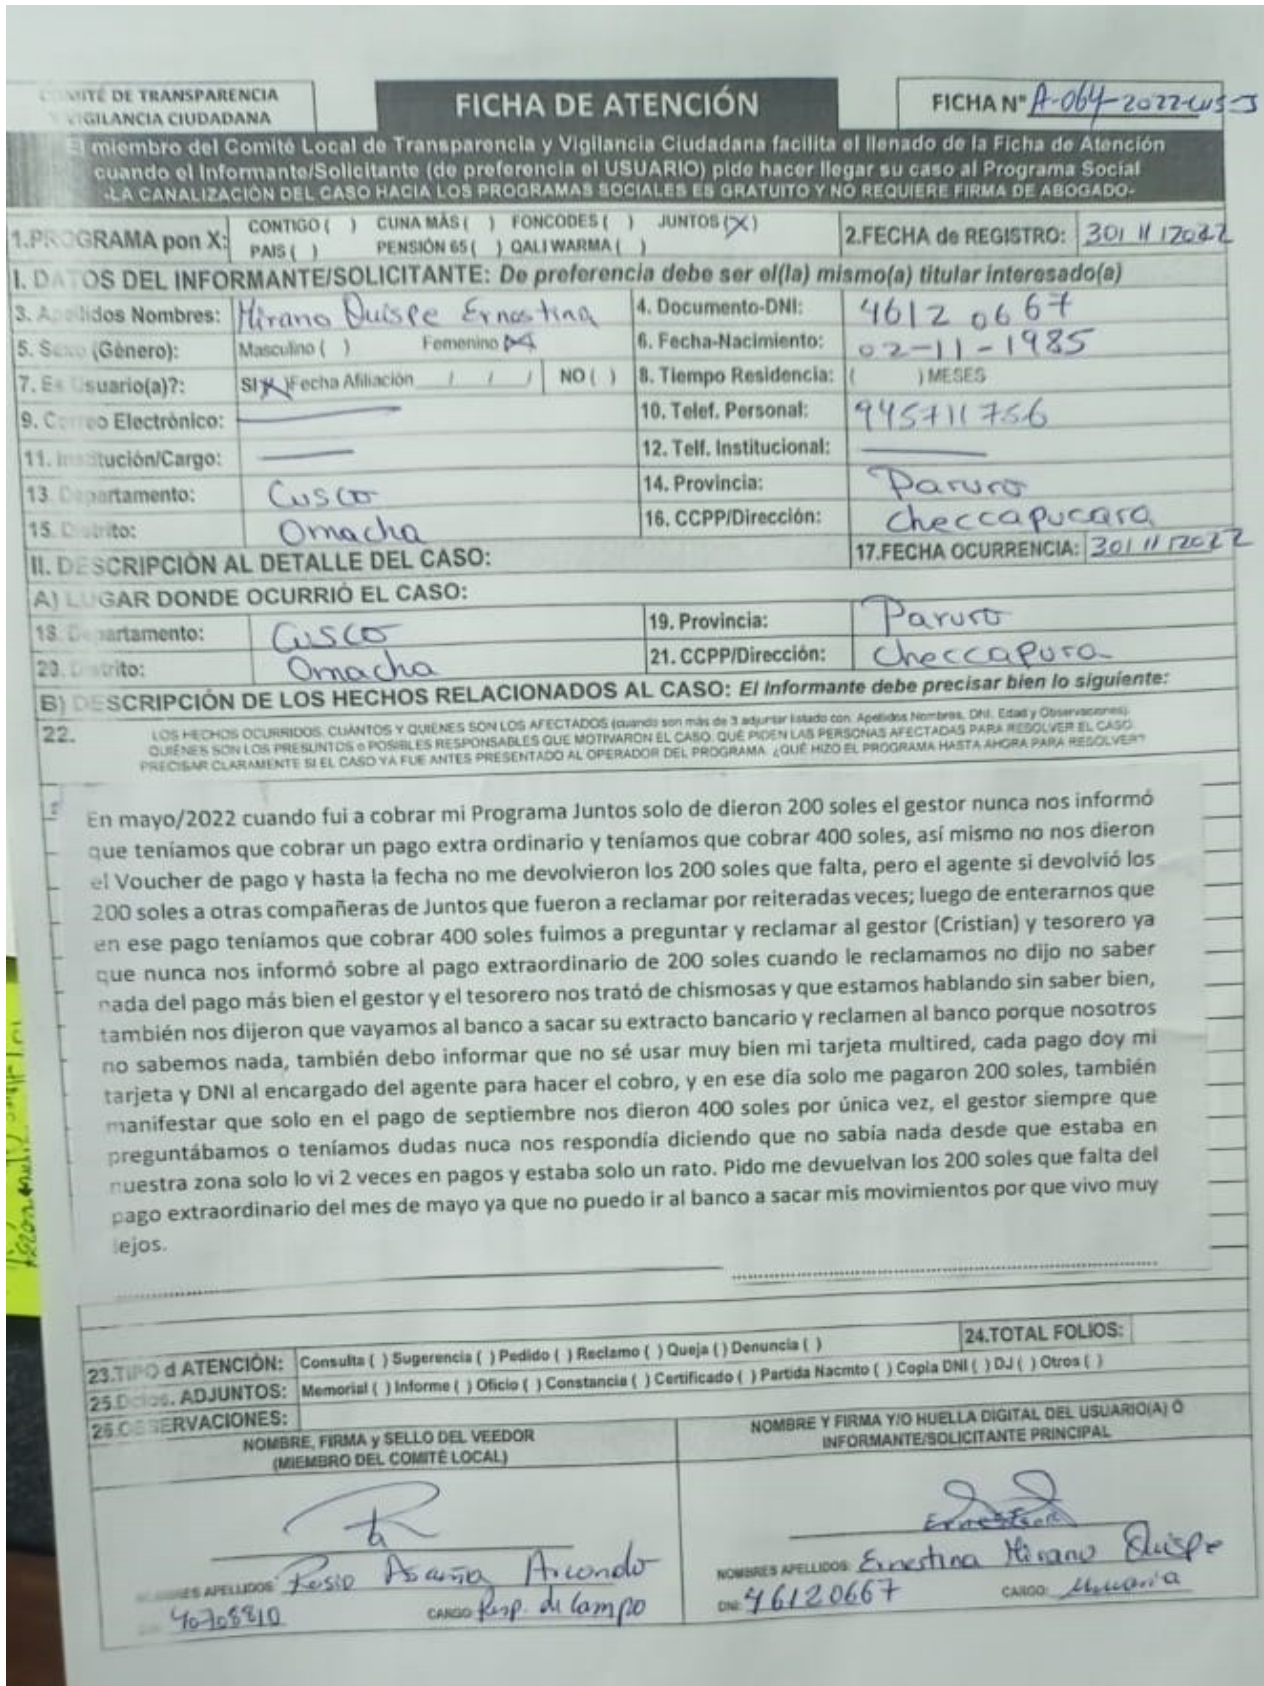 COMITÉ DE TRANSPARENCIA
Y VIGILANCIA CIUDADANA
FICHA DE ATENCIÓN
FICHA N° A-064-2022-CUS-J
El miembro del Comité Local de Transparencia y Vigilancia Ciudadana facilita el llenado de la Ficha de Atención
cuando el Informante/Solicitante (de preferencia el USUARIO) pide hacer llegar su caso al Programa Social
-LA CANALIZACIÓN DEL CASO HACIA LOS PROGRAMAS SOCIALES ES GRATUITO Y NO REQUIERE FIRMA DE ABOGADO-
1.PROGRAMA pon X: CONTIGO ( ) CUNA MÁS ( ) FONCODES ( ) JUNTOS (X)
PAIS ( ) PENSIÓN 65 ( ) QALI WARMA ( )
2.FECHA de REGISTRO: 30/11/2022
I. DATOS DEL INFORMANTE/SOLICITANTE: De preferencia debe ser el(la) mismo(a) titular interesado(a)
3. Apellidos Nombres: Hirano Quispe Ernestina 4. Documento-DNI: 46120667
5. Sexo (Género): Masculino ( ) Femenino (X) 6. Fecha-Nacimiento: 02-11-1985
7. Es Usuario(a)?: SI (X) Fecha Afiliación / / / NO ( ) 8. Tiempo Residencia: ( ) MESES
9. Correo Electrónico: 10. Telef. Personal: 945711756
11. Institución/Cargo: 12. Telf. Institucional:
13. Departamento: Cusco 14. Provincia: Paruro
15. Distrito: Omacha 16. CCPP/Dirección: Checcapucara
II. DESCRIPCIÓN AL DETALLE DEL CASO: 17.FECHA OCURRENCIA: 30/11/2022
A) LUGAR DONDE OCURRIÓ EL CASO:
18. Departamento: Cusco 19. Provincia: Paruro
20. Distrito: Omacha 21. CCPP/Dirección: Checcapura
B) DESCRIPCIÓN DE LOS HECHOS RELACIONADOS AL CASO: El Informante debe precisar bien lo siguiente:
22. LOS HECHOS OCURRIDOS, CUÁNTOS Y QUIÉNES SON LOS AFECTADOS (cuando son más de 3 adjuntar listado con: Apellidos Nombres, DNI, Edad y Observaciones).
QUIÉNES SON LOS PRESUNTOS o POSIBLES RESPONSABLES QUE MOTIVARON EL CASO. QUÉ PIDEN LAS PERSONAS AFECTADAS PARA RESOLVER EL CASO.
PRECISAR CLARAMENTE SI EL CASO YA FUE ANTES PRESENTADO AL OPERADOR DEL PROGRAMA. ¿QUÉ HIZO EL PROGRAMA HASTA AHORA PARA RESOLVER?
En mayo/2022 cuando fui a cobrar mi Programa Juntos solo de dieron 200 soles el gestor nunca nos informó
que teníamos que cobrar un pago extra ordinario y teníamos que cobrar 400 soles, así mismo no nos dieron
el Voucher de pago y hasta la fecha no me devolvieron los 200 soles que falta, pero el agente si devolvió los
200 soles a otras compañeras de Juntos que fueron a reclamar por reiteradas veces; luego de enterarnos que
en ese pago teníamos que cobrar 400 soles fuimos a preguntar y reclamar al gestor (Cristian) y tesorero ya
que nunca nos informó sobre al pago extraordinario de 200 soles cuando le reclamamos no dijo no saber
nada del pago más bien el gestor y el tesorero nos trató de chismosas y que estamos hablando sin saber bien,
también nos dijeron que vayamos al banco a sacar su extracto bancario y reclamen al banco porque nosotros
no sabemos nada, también debo informar que no sé usar muy bien mi tarjeta multired, cada pago doy mi
tarjeta y DNI al encargado del agente para hacer el cobro, y en ese día solo me pagaron 200 soles, también
manifestar que solo en el pago de septiembre nos dieron 400 soles por única vez, el gestor siempre que
preguntábamos o teníamos dudas nuca nos respondía diciendo que no sabía nada desde que estaba en
nuestra zona solo lo vi 2 veces en pagos y estaba solo un rato. Pido me devuelvan los 200 soles que falta del
pago extraordinario del mes de mayo ya que no puedo ir al banco a sacar mis movimientos por que vivo muy
lejos.
23.TIPO d ATENCIÓN: Consulta ( ) Sugerencia ( ) Pedido ( ) Reclamo ( ) Queja ( ) Denuncia ( ) 24.TOTAL FOLIOS:
25.Dctos. ADJUNTOS: Memorial ( ) Informe ( ) Oficio ( ) Constancia ( ) Certificado ( ) Partida Nacmto ( ) Copia DNI ( ) DJ ( ) Otros ( )
26.OBSERVACIONES:
NOMBRE, FIRMA y SELLO DEL VEEDOR
(MIEMBRO DEL COMITÉ LOCAL)
NOMBRE Y FIRMA Y/O HUELLA DIGITAL DEL USUARIO(A) Ó
INFORMANTE/SOLICITANTE PRINCIPAL
NOMBRES APELLIDOS: Rosio Asarña Arcondo
DNI: 40708810 CARGO: Resp. de Campo
Ernestina
NOMBRES APELLIDOS: Ernestina Hirano Quispe
DNI: 46120667 CARGO: Usuaria